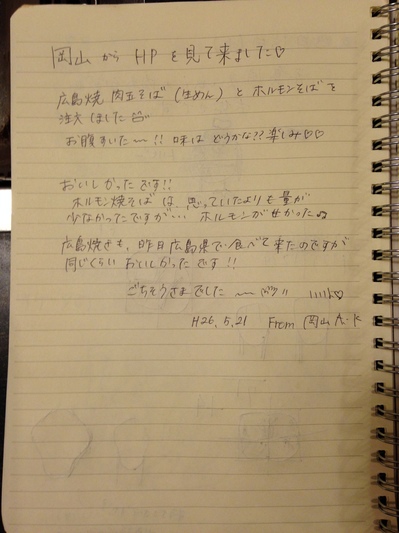 岡山から HPを見て来ました♡
広島焼 肉玉そば（生めん）と ホルモンそばを
注文しました
お腹すいた〜!! 味は どうかな?? 楽しみ♡♡
おいしかったです!!
ホルモン焼そば は、思っていたよりも量が
少なかったですが… ホルモンが甘かった
広島焼きも、昨日 広島県で食べて来たのですが
同じくらい おいしかったです!!
ごちそうさまでした 〜
H26.5.21 From 岡山 A.K